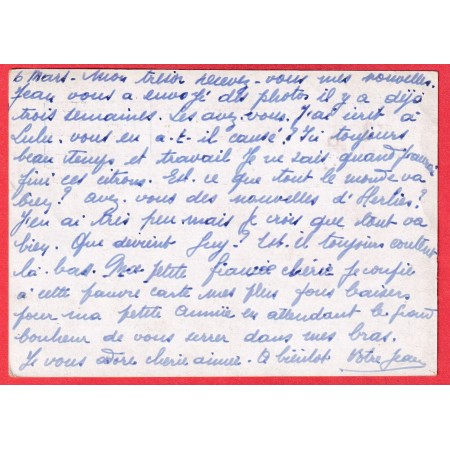 6 Mars - Mon trésor recevez-vous mes nouvelles.
Jean vous a envoyé des photos il y a déjà
trois semaines. Les avez-vous. J'ai écrit à
Lulu. vous en a-t-il causé? Ici toujours
beau temps et travail Je ne sais quand j'aurai
fini ces citrons. Est-ce que tout le monde va
bien? avez-vous des nouvelles d'Herlies?
J'en ai très peu mais je crois que tout va
bien. Que devient Guy? Est-il toujours content
là-bas. Ma petite fiancée chérie je confie
à cette pauvre carte mes plus fous baisers
pour ma petite Annie en attendant le grand
bonheur de vous serrer dans mes bras.
Je vous adore chérie aimée. A bientôt Votre Jean